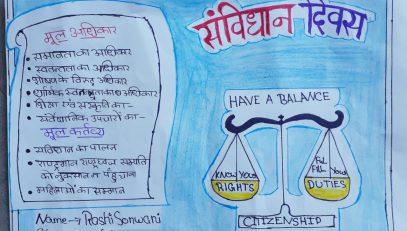 संविधान दिवस
मूल अधिकार
• समानता का अधिकार
• स्वतन्त्रता का अधिकार
• शोषण के विरुद्ध अधिकार
• धार्मिक स्वतन्त्रता का अधिकार
• शिक्षा एवं संस्कृति का-
• संवैधानिक उपचारों का-
मूल कर्तव्य
• संविधान का पालन
• राष्ट्रगान राष्ट्रध्वज सम्पत्ति
को नुकसान न पहुँचाना
• महिलाओं का सम्मान
Name → Rashi Sonwani
HAVE A BALANCE
KNOW YOUR
RIGHTS
Ful
Fill YOUR
DUTIES
CITIZENSHIP